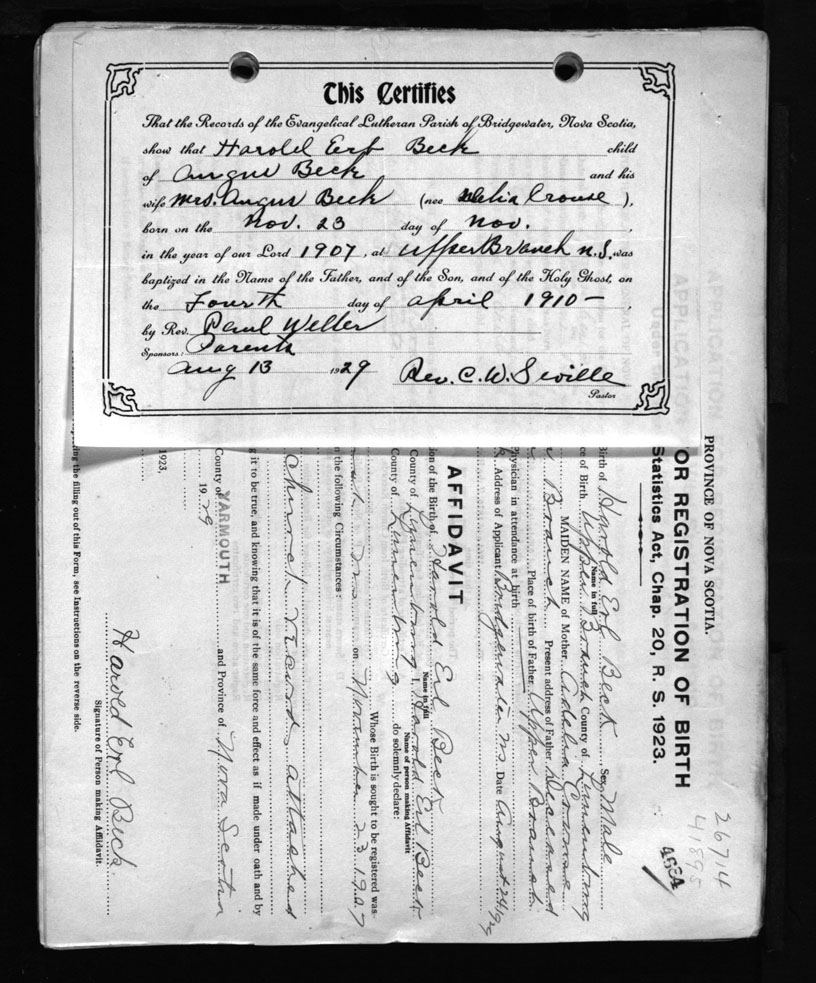 This Certifies
That the Records of the Evangelical Lutheran Parish of Bridgewater, Nova Scotia,
show that Harold Erb Beck child
of Aungus Beck and his
wife Mrs. Angus Beck (nee Delia Crouse ),
born on the Nov. 23 day of Nov. ,
in the year of our Lord 1907, at Upper Branch N.S. was
baptized in the Name of the Father, and of the Son, and of the Holy Ghost, on
the Fourth day of April 1910- ,
by Rev. Paul Weller
Sponsors: Parents
Aug 13 1929 Rev. C. W. Seville
Pastor
26714
41895
PROVINCE OF NOVA SCOTIA.
OR REGISTRATION OF BIRTH
Statistics Act, Chap. 20, R. S. 1923.
Birth of Harold Erl Beck Sex Male
Name in full
ce of Birth Upper Branch County of Lunenburg
MAIDEN NAME of Mother Adelia Crouse
Branch Present address of Father Deceased
Place of birth of Father Upper Branch
Physician in attendance at birth
Address of Applicant Bridgewater NS Date August 24/29
AFFIDAVIT
ion of the Birth of Harold Erl Beck
Name in full
County of Lunenburg I, Harold Erl Beck
Name of person making Affidavit
County of Lunenburg do solemnly declare:
Whose Birth is sought to be registered was
on November 23 1907
n the following Circumstances:
Church records attached
g it to be true, and knowing that it is of the same force and effect as if made under oath and by
County of YARMOUTH and Province of Nova Scotia
1929
1923,
Harold Erl Beck
Signature of Person making Affidavit.
the filling out of this Form, see Instructions on the reverse side.